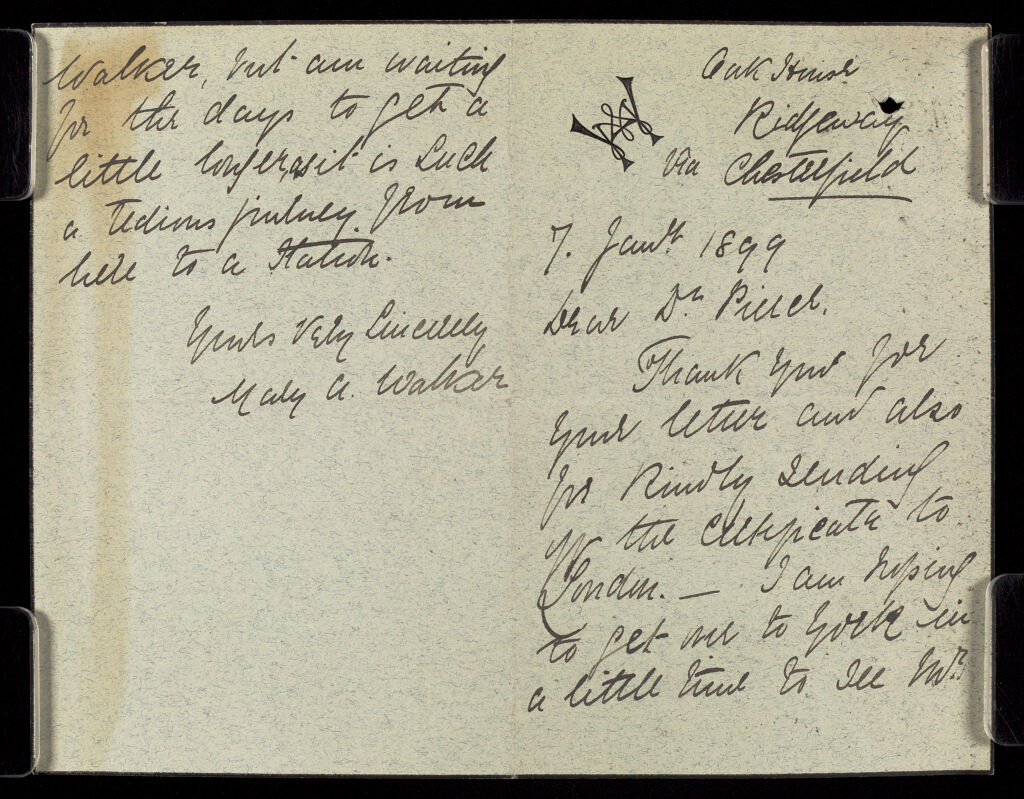 Oak House
Ridgeway
via Chesterfield
7. Jany 1899
Dear Dr. Pierce.
Thank you for
your letter and also
for kindly sending
up the certificate to
London. — I am hoping
to get over to York in
a little time to see Mr.
Walker, but am waiting
for the days to get a
little longer, as it is such
a tedious journey from
here to a station.
Yours very sincerely
Mary A. Walker